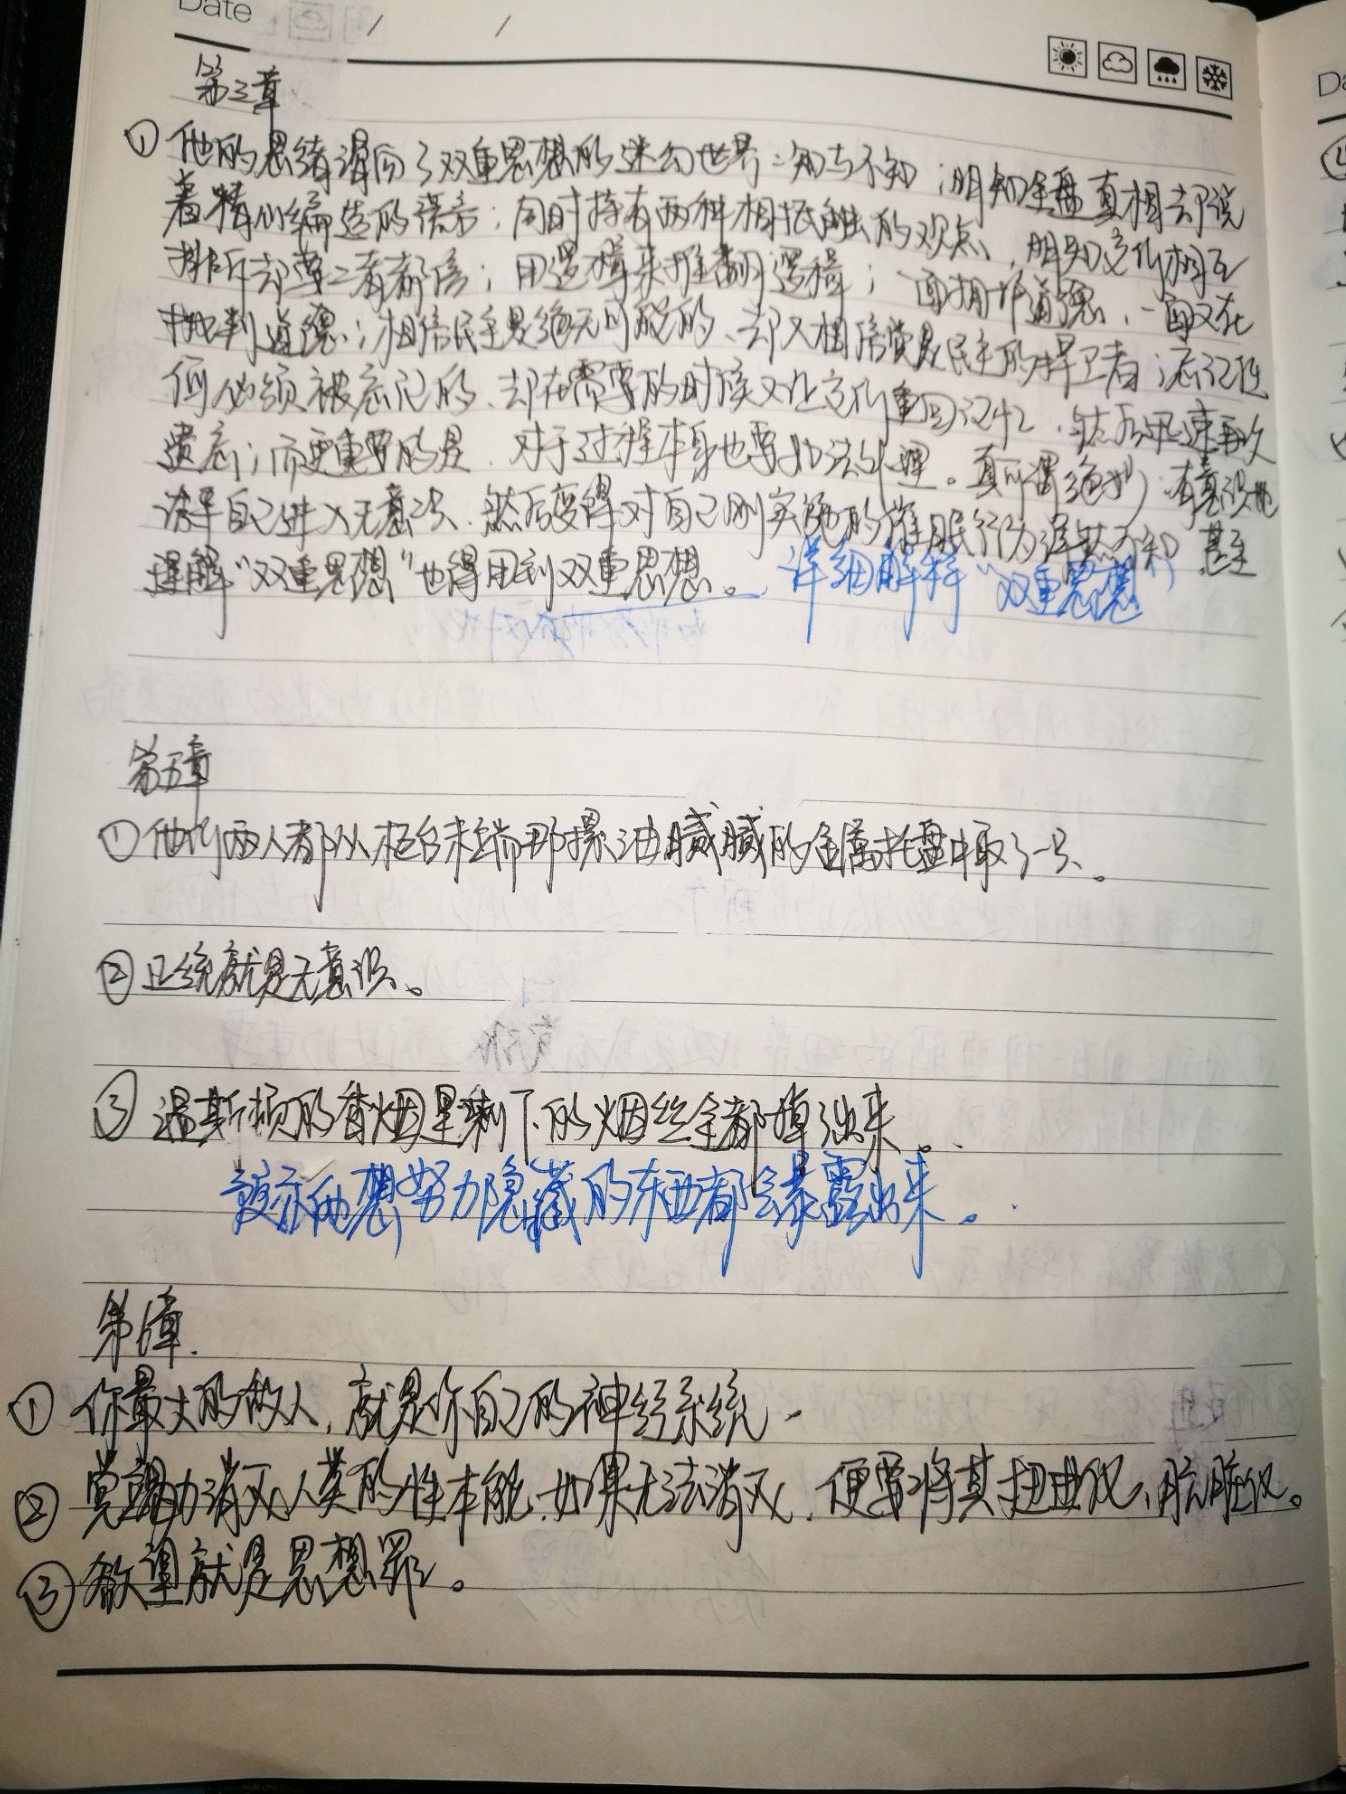 Date / /
第三章
① 他的思绪滑向了双重思想的迷幻世界：知与不知；明知全盘真相却说
着精心编造的谎言；同时持有两种相抵触的观点，明知它们相互
排斥却要二者都信；用逻辑来推翻逻辑；一面拥护道德，一面又在
批判道德；相信民主是绝无可能的、却又相信党是民主的捍卫者；忘记任
何必须被忘记的、却在需要的时候又让它们重回记忆，然后迅速再次
遗忘；而更重要的是，对于过程本身也要如法处理。真可谓绝妙：有意识地
诱导自己进入无意识、然后变得对自己刚实施的催眠行为浑然不知，甚至
理解“双重思想”也得用到双重思想。 详细解释“双重思想”
第五章
① 他们两人都从柜台末端那摞油腻腻的金属托盘中取了一只、。
② 正统就是无意识。
③ 温斯顿的香烟里剩下的烟丝全都掉了出来。
预示他想努力隐藏的东西都会暴露出来。
第六章.
① 你最大的敌人，就是你自己的神经系统
② 党竭力消灭人类的性本能、如果无法消灭，便要将其扭曲化、肮脏化。
③ 欲望就是思想罪。